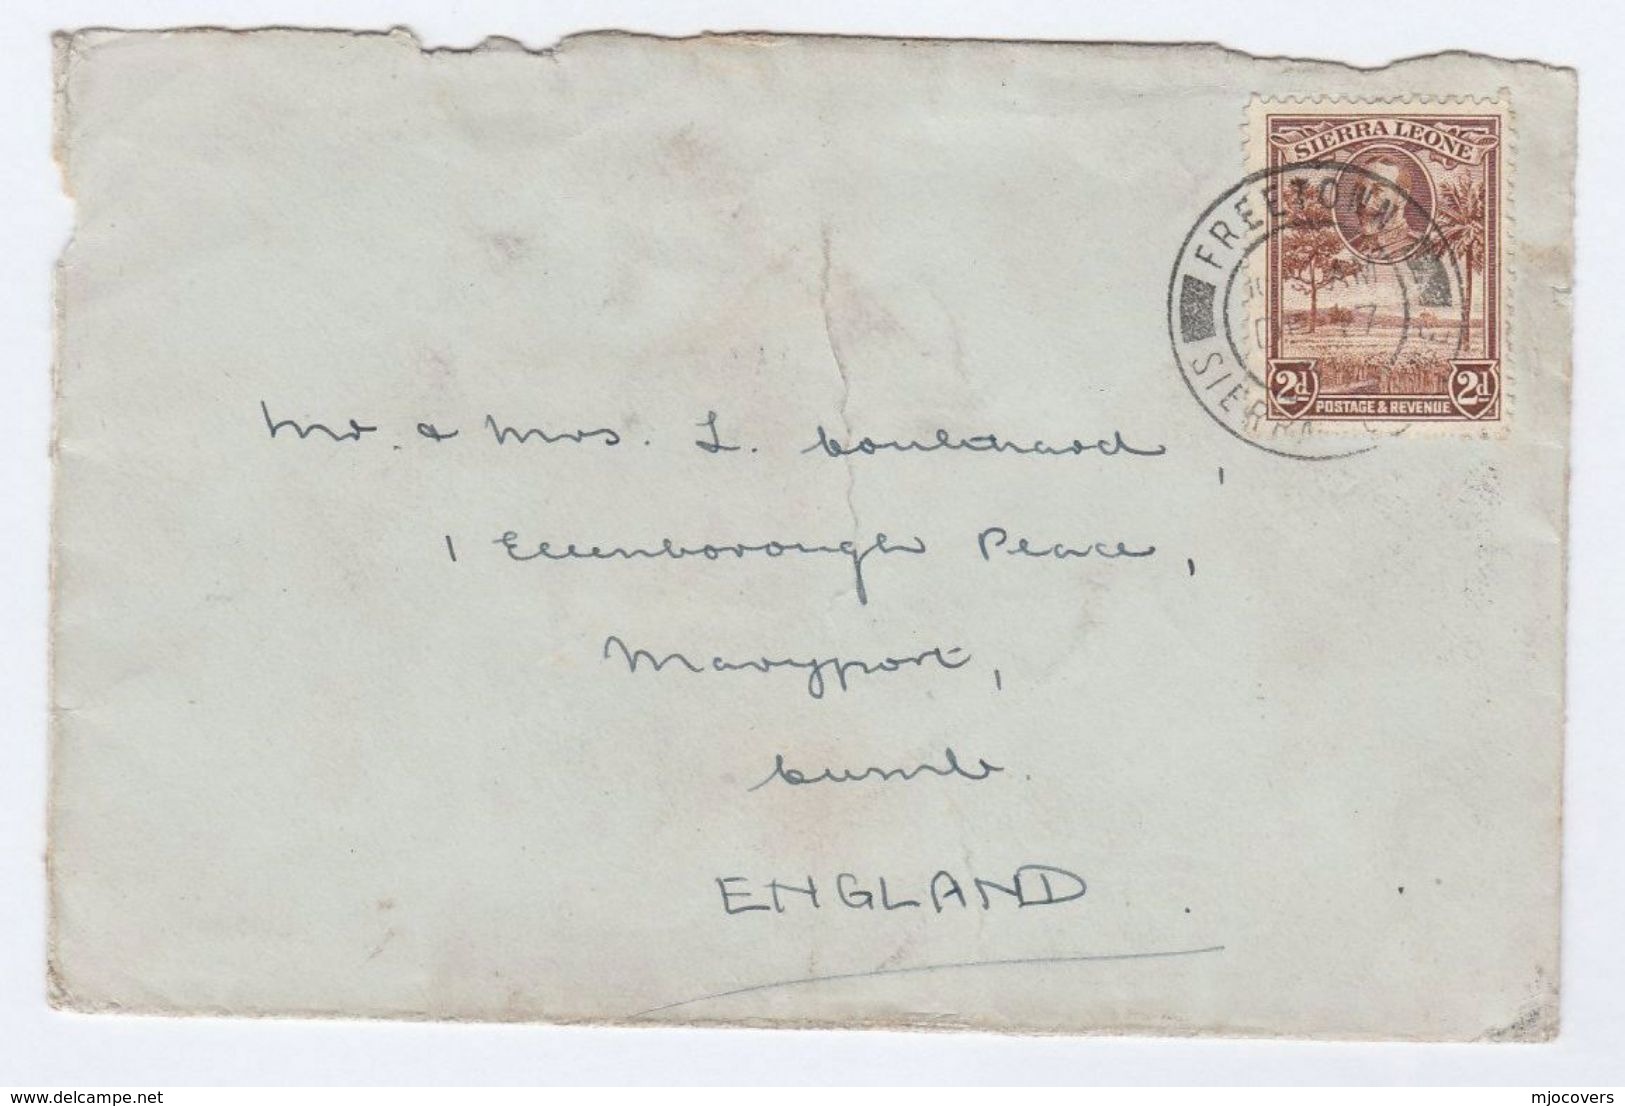 SIERRA LEONE
FREETOWN
AM
SIERRA
2d POSTAGE & REVENUE 2d
Mr. & Mrs. L. Coulthard,
1 Ellenborough Place,
Maryport,
Cumb.
ENGLAND.
www.delcampe.net
mjocovers